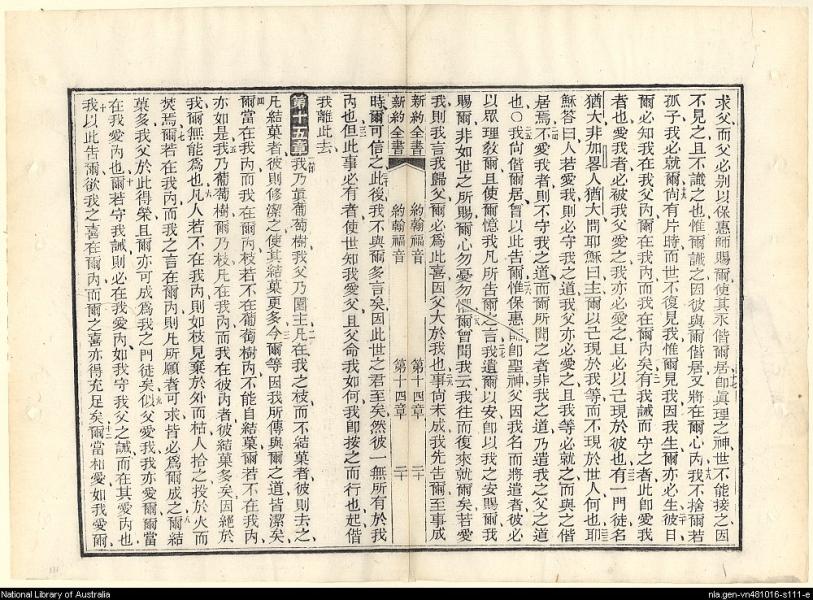 求父而父必別以保惠師賜爾使其永偕爾居卽眞理之神世不能接之因
不見之且不識之也惟爾識之因彼與爾偕居又將在爾心內我不捨爾若
孤子我必就爾尚有片時而世不復見我惟爾見我因我生爾亦必生彼日
爾必知我在我父內爾在我內而我在爾內矣有我誡而守之者此卽愛我
者也愛我者必被我父愛之我亦必愛之且必以己現於彼也有一門徒名
猶大非加畧人猶大問耶穌曰主爾以己現於我等而不現於世人何也耶
穌答曰人若愛我則必守我之道我父亦必愛之且我等必就之而與之偕
居焉不愛我者則不守我之道而爾所聞之者非我之道乃遣我之父之道
也〇我尚偕爾居曾以此告爾惟保惠師卽聖神父因我名而將遣者彼必
以眾理敎爾且使爾憶我凡所告爾之言我遺爾以安卽以我之安賜爾我
賜爾非如世之所賜爾心勿憂勿懼爾曾聞我云我往而復來就爾矣若愛
我則我言我歸父爾必爲此喜因父大於我也事尚未成我先告爾至事成
新約全書 約翰福音 第十四章 二十
新約全書 約翰福音 第十四章 二十
時爾可信之此後我不與爾多言矣因此世之君至矣然彼一無所有於我
內也但此事必有者使世知我愛父且父命我如何我卽按之而行也起偕
我離此去
第十五章 我乃眞葡萄樹我父乃園主凡在我之枝而不結菓者彼則去之
凡結菓者彼則修潔之使其結菓更多今爾等因我所傳與爾之道皆潔矣
爾當在我內而我在爾內枝若不在葡萄樹內不能自結菓爾若不在我內
亦如是我乃葡萄樹爾乃枝凡在我內而我在彼內者彼結菓多矣因絕於
我爾無能爲也凡人若不在我內則如枝見棄於外而枯人拾之投於火而
焚焉爾若在我內而我之言在爾內則凡所願者可求皆必爲爾成之爾結
菓多我父於此得榮且爾亦可成爲我之門徒矣似父愛我我亦愛爾爾當
在我愛內也爾若守我誡則必在我愛內如我守我父之誡而在其愛內也
我以此告爾欲我之喜在爾內而爾之喜亦得充足矣爾當相愛如我愛爾
National Library of Australia
nla.gen-vn481016-s111-e